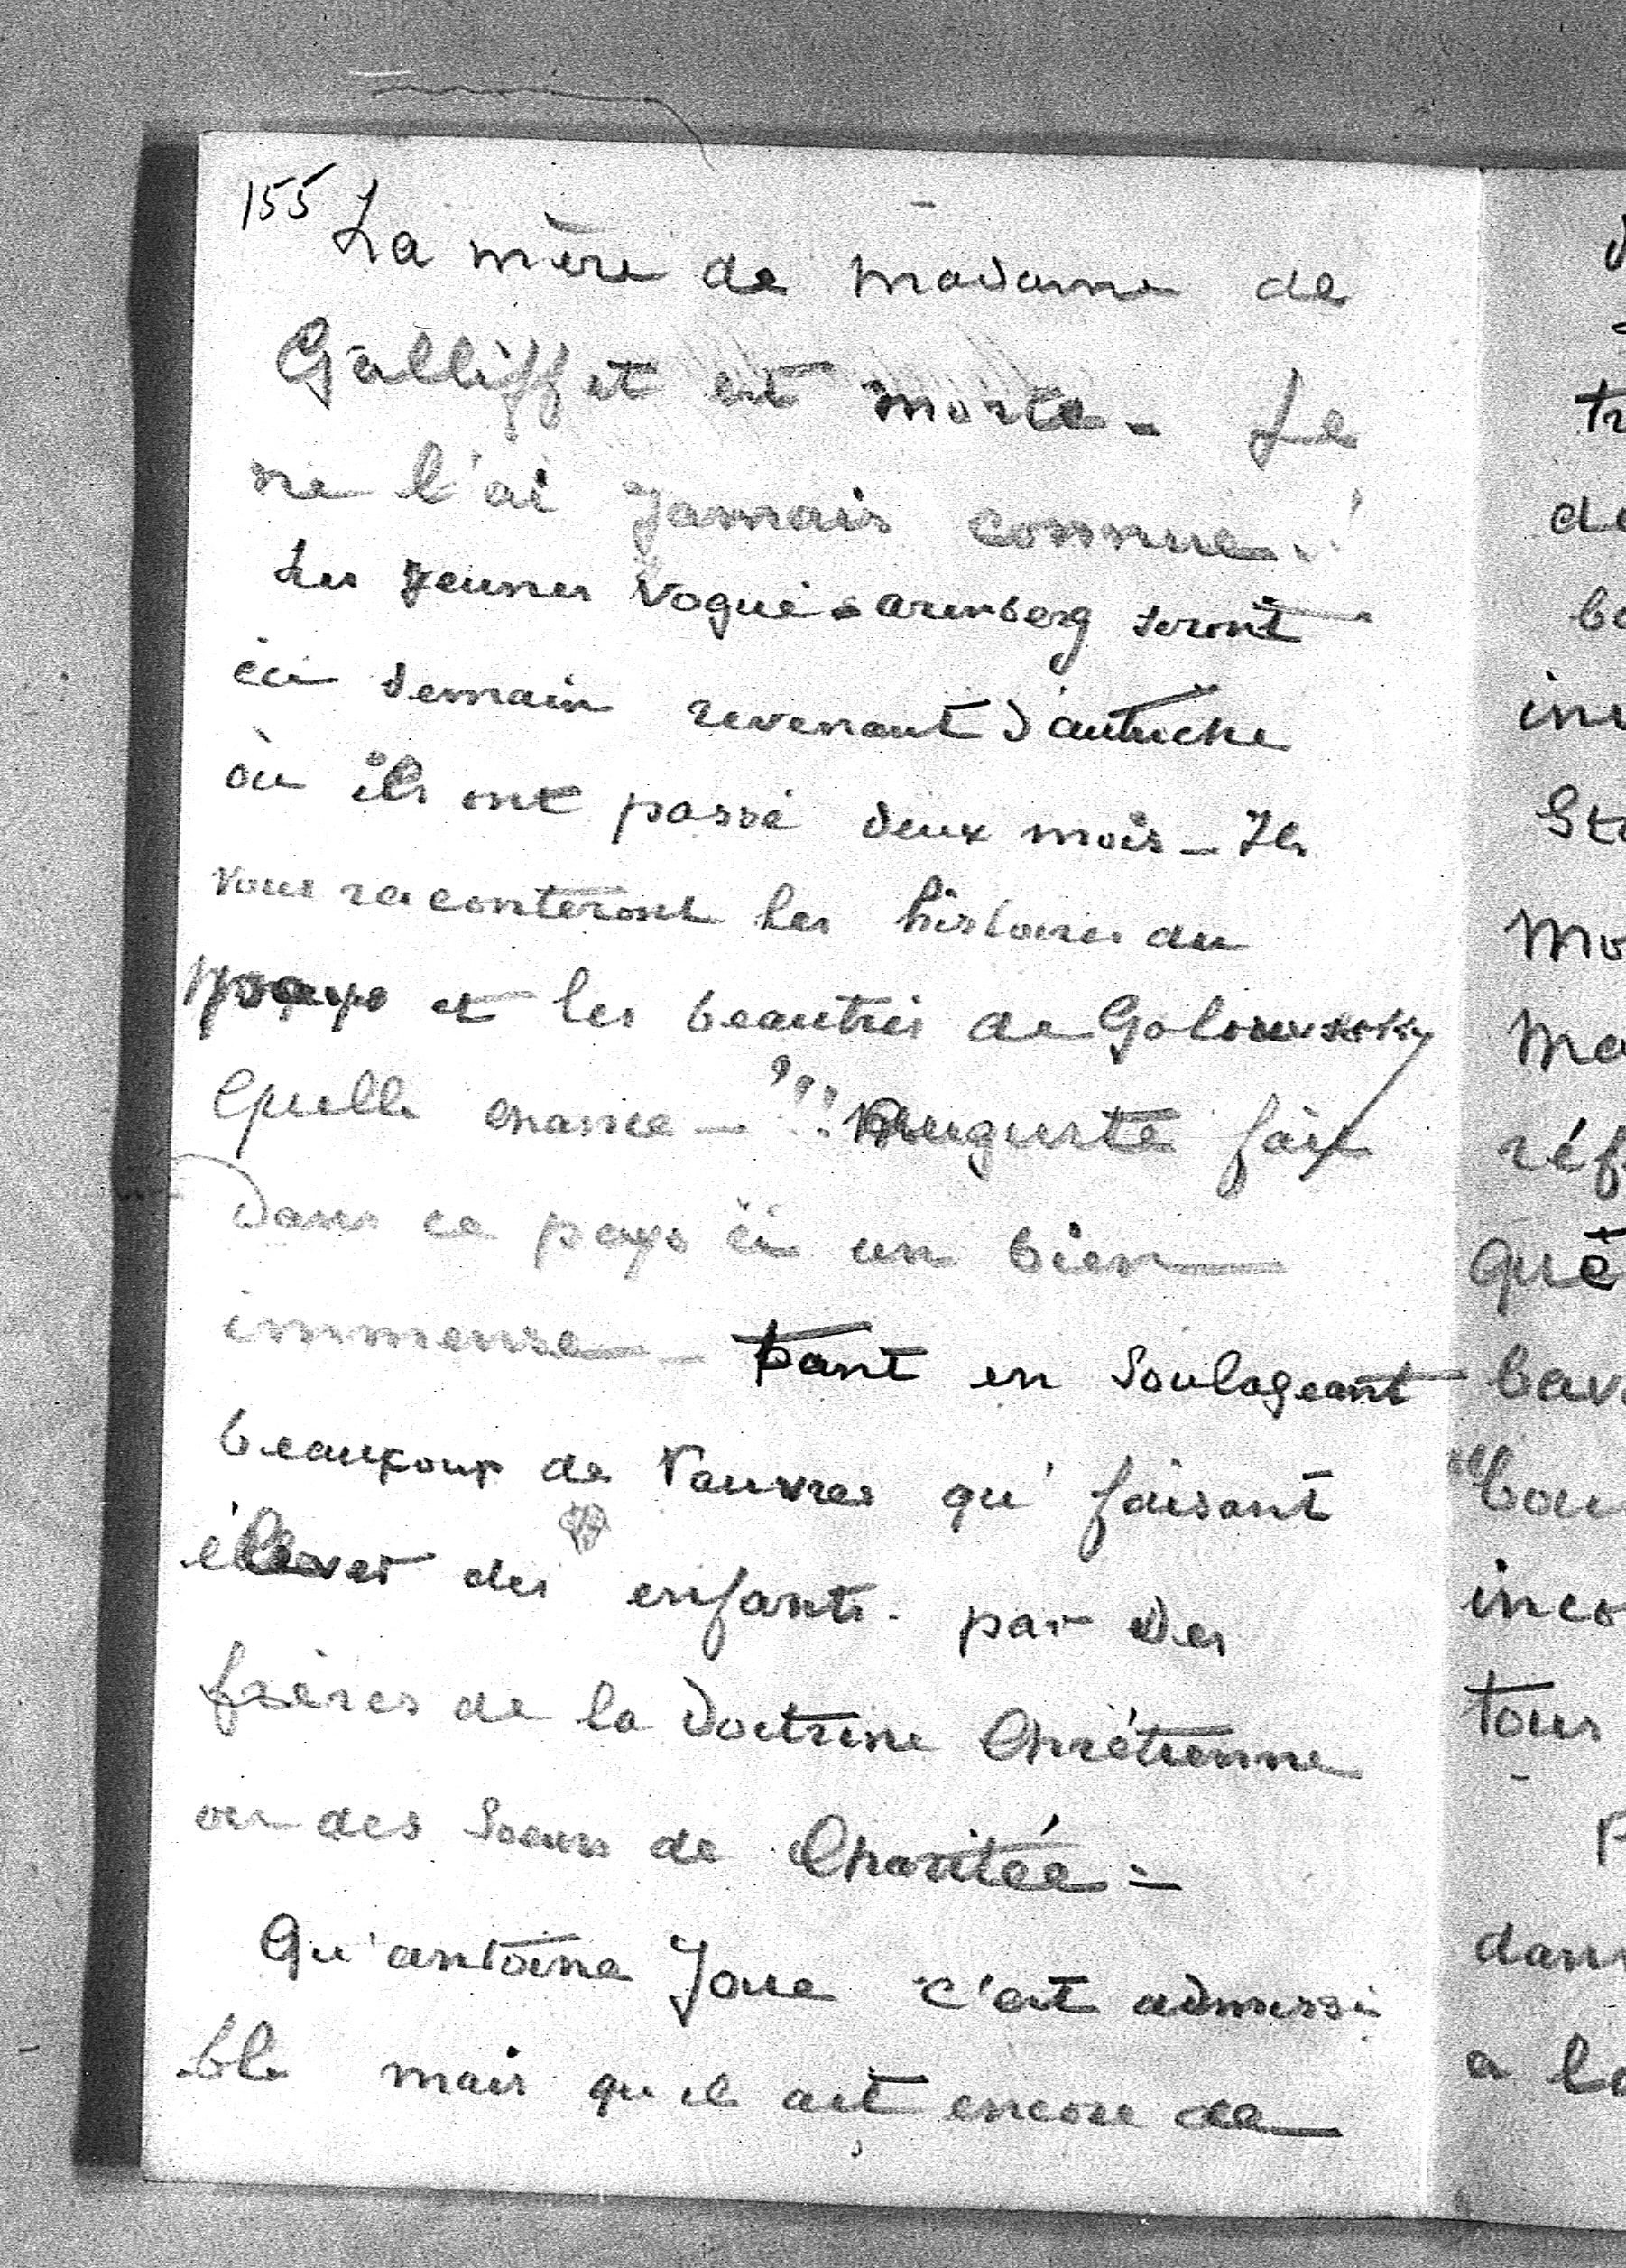 155
La mère de madame de
Galliffet est morte - Je
ne l'ai Jamais connue !
Les Jeunes Vogué-arenberg seront
ici demain revenant d'autriche
où ils ont passé deux mois - Ils
vous raconteront les histoires du
pays et les beautés de
Quelle chasse - !!! Auguste fait
dans ce pays ci un bien
immense - tant en Soulageant
beaucoup de Pauvres qu' faisant
éllever des enfants. par des
frères de la Doctrine Chrétienne
ou des Soeurs de Charitée -
Qu'antoine Joue c'est admissi
ble mais qu'il ait encore de